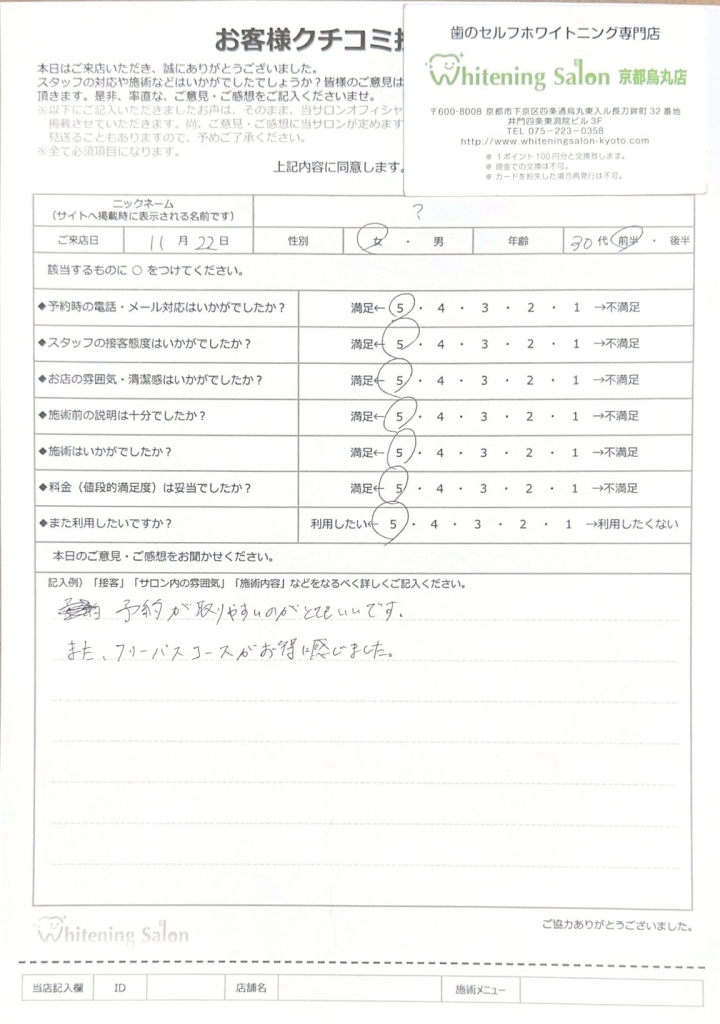 お客様クチコミ
本日はご来店いただき、誠にありがとうございました。
スタッフの対応や施術などはいかがでしたでしょうか？皆様のご意見は
頂きます。是非、率直な、ご意見・ご感想をご記入くださいませ。
※以下にご記入いただきましたお声は、そのまま、当サロンオフィシャ
掲載させていただきます。尚、ご意見・ご感想に当サロンが定めます
見送ることもありますので、予めご了承ください。
※全て必須項目になります。
上記内容に同意します。
歯のセルフホワイトニング専門店
Whitening Salon 京都烏丸店
〒600-8008 京都市下京区四条通烏丸東入ル長刀鉾町 32 番地
井門四条東洞院ビル 3F
TEL 075-223-0358
http://www.whiteningsalon-kyoto.com
※ 1ポイント100円分と交換致します。
※ 現金での交換は不可。
※ カードを紛失した場合再発行は不可。
ニックネーム
（サイトへ掲載時に表示される名前です） ?
ご来店日 11 月 22 日 性別 女 ・ 男 年齢 30 代 前半 ・ 後半
該当するものに ○ をつけてください。
◆予約時の電話・メール対応はいかがでしたか？ 満足← 5 ・ 4 ・ 3 ・ 2 ・ 1 →不満足
◆スタッフの接客態度はいかがでしたか？ 満足← 5 ・ 4 ・ 3 ・ 2 ・ 1 →不満足
◆お店の雰囲気・清潔感はいかがでしたか？ 満足← 5 ・ 4 ・ 3 ・ 2 ・ 1 →不満足
◆施術前の説明は十分でしたか？ 満足← 5 ・ 4 ・ 3 ・ 2 ・ 1 →不満足
◆施術はいかがでしたか？ 満足← 5 ・ 4 ・ 3 ・ 2 ・ 1 →不満足
◆料金（値段的満足度）は妥当でしたか？ 満足← 5 ・ 4 ・ 3 ・ 2 ・ 1 →不満足
◆また利用したいですか？ 利用したい← 5 ・ 4 ・ 3 ・ 2 ・ 1 →利用したくない
本日のご意見・ご感想をお聞かせください。
記入例）「接客」「サロン内の雰囲気」「施術内容」などをなるべく詳しくご記入ください。
予約が取りやすいのがとてもいいです。
また、フリーパスコースがお得に感じました。
Whitening Salon
ご協力ありがとうございました。
当店記入欄 ID 店舗名 施術メニュー